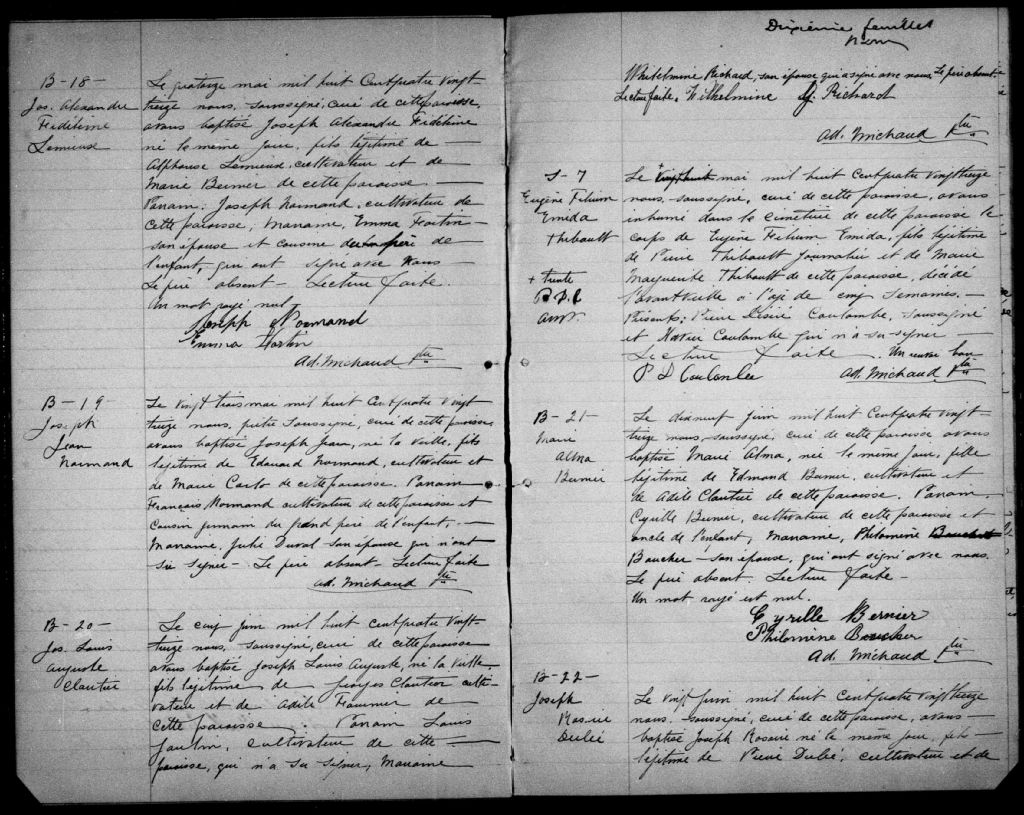 B-18-
Jos. Alexandre
Fidélime
Lemieux
Le quatorze mai mil huit cent quatre vingt
treize nous, soussigné, curé de cette paroisse,
avons baptisé Joseph Alexandre Fidélime
né le même jour, fils légitime de
Alphonse Lemieux, cultivateur et de
Marie Bernier de cette paroisse
Parrain, Joseph Normand, cultivateur de
cette paroisse, Marraine, Emma Fortin
son épouse et cousine de
l'enfant, qui ont signé avec nous
Le père absent - Lecture faite.
Un mot rayé nul
Joseph Normand
Emma Fortin
Ad. Michaud Ptre
B-19-
Joseph
Jean
Normand
Le vingt trois mai mil huit cent quatre vingt
treize nous, prêtre soussigné, curé de cette paroisse
avons baptisé Joseph Jean, né la veille, fils
légitime de Edouard Normand, cultivateur et
de Marie de cette paroisse. Parrain
François Normand cultivateur de cette paroisse et
cousin germain du grand père de l'enfant,
Marraine, Julie Duval son épouse qui n'ont
su signer - Le père absent - Lecture faite
Ad. Michaud Ptre
B-20-
Jos. Louis
Auguste
Cloutier
Le cinq juin mil huit cent quatre vingt
treize nous, soussigné, curé de cette paroisse
avons baptisé Joseph Louis Auguste, né la veille
fils légitime de Georges Cloutier culti-
vateur et de Adèle Fournier de
cette paroisse. Parrain Louis
cultivateur de cette
paroisse, qui n'a su signer, Marraine
Dixième feuillet
Whilelmine Richard, son épouse qui a signé avec nous Le père absent
Lecture faite. Wilhelmine G. Richard
Ad. Michaud Ptre
S-7
Eugène Filium
Emida
Thibault
+ trente
P.D.C
Le vingt huit mai mil huit cent quatre vingt treize
nous, soussigné, curé de cette paroisse, avons
inhumé dans le cimetière de cette paroisse le
corps de Eugène Filium Emida, fils légitime
de Pierre Thibault journalier et de Marie
Marguerite Thibault de cette paroisse, décédé
l'avant veille à l'age de cinq semaines.
Présents; Pierre Désiré Coulombe, soussigné
et Coulombe qui n'a su signer
Lecture faite. Un renvoi bon
P D Coulombe Ad. Michaud Ptre
B-21-
Marie
Alma
Bernier
Le dix neuf juin mil huit cent quatre vingt-
treize nous, soussigné, curé de cette paroisse avons
baptisé Marie Alma, née le même jour, fille
légitime de Edmond Bernier, cultivateur et
de Adèle Cloutier de cette paroisse. Parrain,
Cyrille Bernier, cultivateur de cette paroisse et
oncle de l'enfant, Marraine, Philomine Boucher
Boucher son épouse, qui ont signé avec nous.
Le père absent. Lecture faite -
Un mot rayé est nul.
Cyrille Bernier
Philomine Boucher
Ad. Michaud Ptre
B-22-
Joseph
Rosaire
Dubé
Le vingt juin mil huit cent quatre vingt treize
nous, soussigné, curé de cette paroisse, avons
baptisé Joseph Rosaire né le même jour, fils
légitime de Pierre Dubé, cultivateur et de